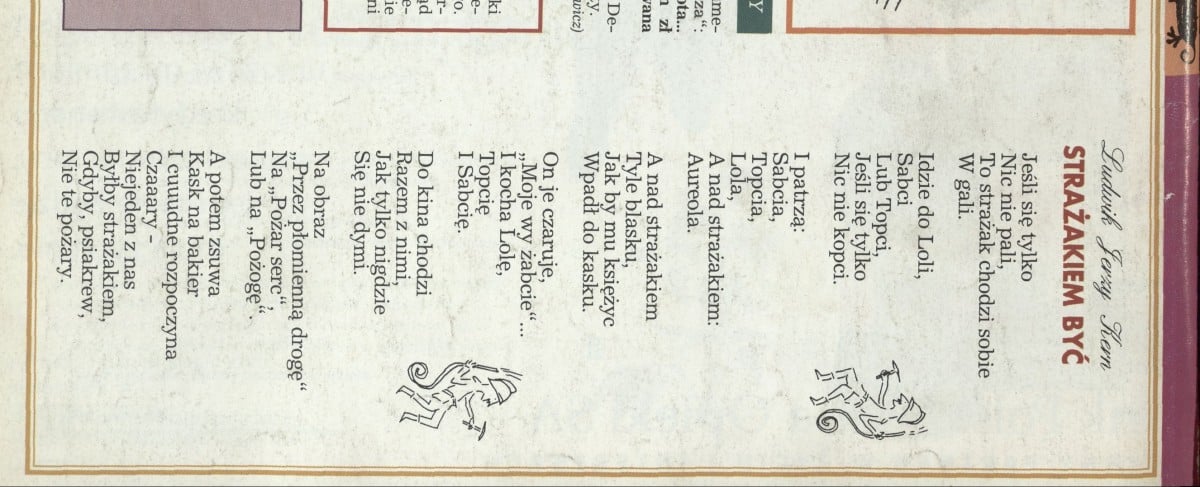 Ludwik Jerzy Kern
STRAŻAKIEM BYĆ
Jeśli się tylko
Nic nie pali,
To strażak chodzi sobie
W gali.
Idzie do Loli,
Sabci
Lub Topci,
Jeśli się tylko
Nic nie kopci.
I patrzą:
Sabcia,
Topcia,
Lola,
A nad strażakiem:
Aureola.
A nad strażakiem
Tyle blasku,
Jak by mu księżyc
Wpadł do kasku.
On je czaruje,
„Moje wy żabcie"...
I kocha Lolę,
Topcię
I Sabcię.
Do kina chodzi
Razem z nimi,
Jak tylko nigdzie
Się nie dymi.
Na obraz
„Przez płomienną drogę"
Na „Pożar serc",
Lub na „Pożogę".
A potem zsuwa
Kask na bakier
I cuuudne rozpoczyna
Czaaary -
Niejeden z nas
Byłby strażakiem,
Gdyby, psiakrew,
Nie te pożary.